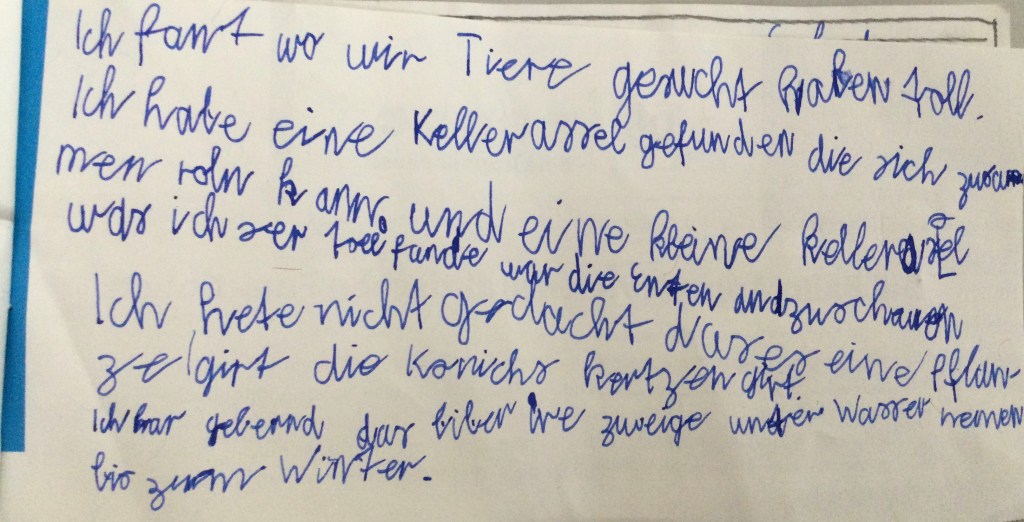 Ich fant wo wir Tiere gesucht haben toll.
Ich habe eine Kellerassel gefunden die sich zusam
men roln kann. und eine kleine kellerassel
was ich ser toll fande war die Enten andzuschauen
Ich hete nicht gedacht das es eine Pflan
ze girt die Konichs kertzen girt
Ich har gelernd das biber ire zweige unter Wasser nemen
bis zum Winter.